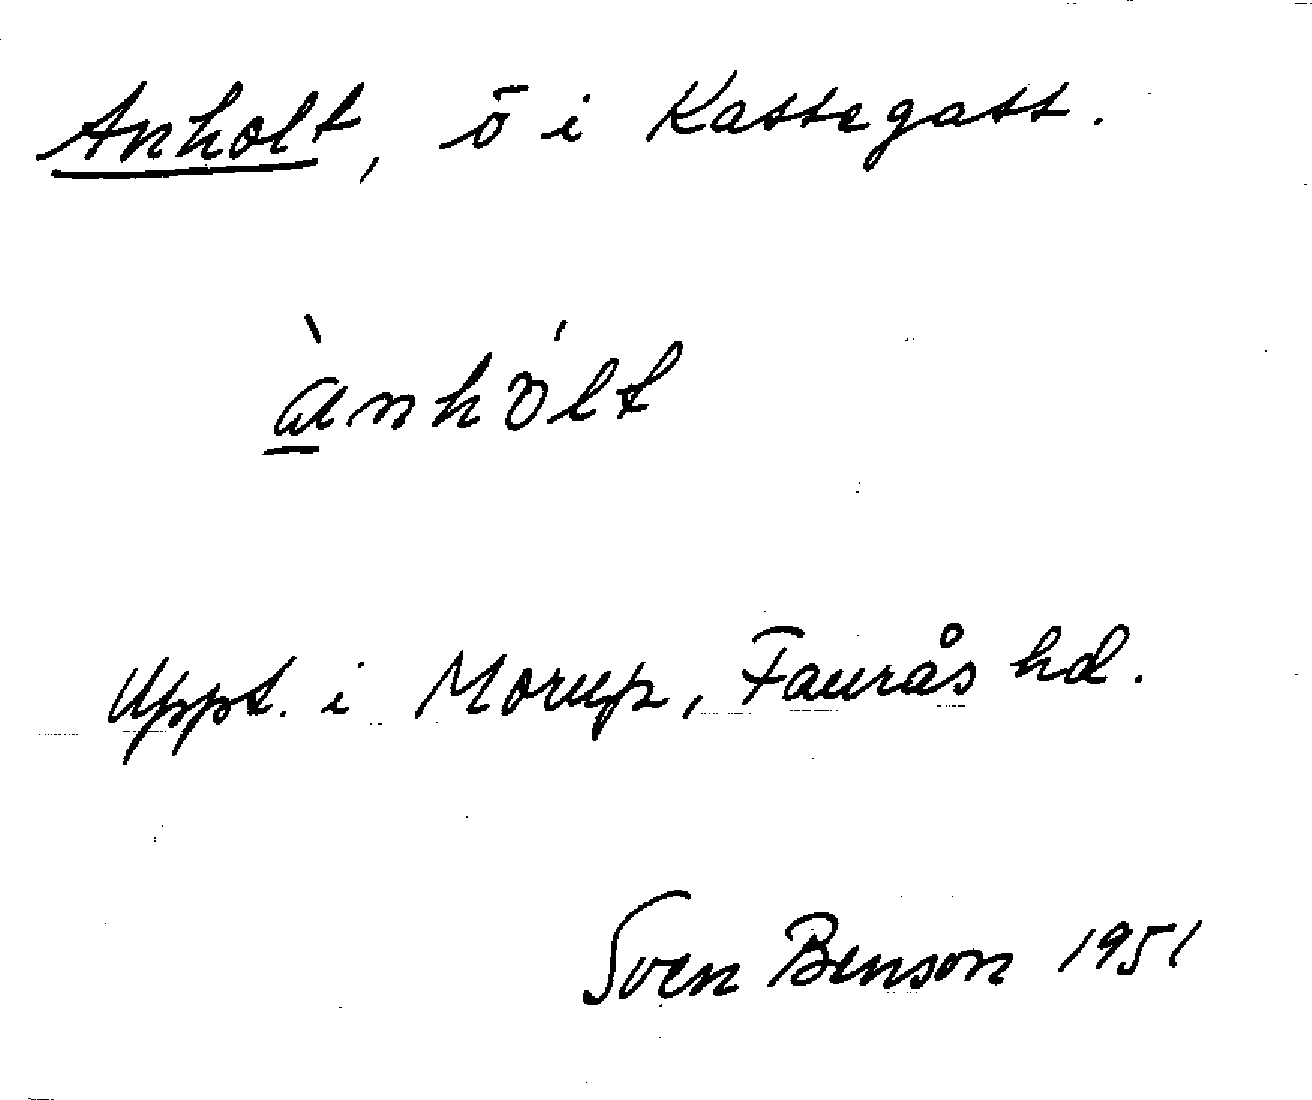 Anholt, ö i Kattegatt.
ànhólt
Uppt. i Morup, Faurås hd.
Sven Benson 1951